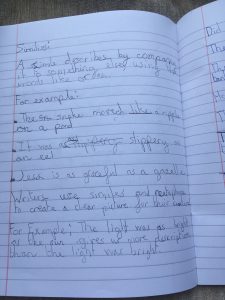 Similies:
A simile describes by comparing
it to something else, using the
words like or as.
For example:
• The moved like a ripple
on a pond
• It was as slippery as
an eel
• Jess is as graceful as a gazelle
Writers use similes and
to create a clear picture for their
For Example: The light was as bright
as the sun gives us more description
than the light was bright.
Did
The